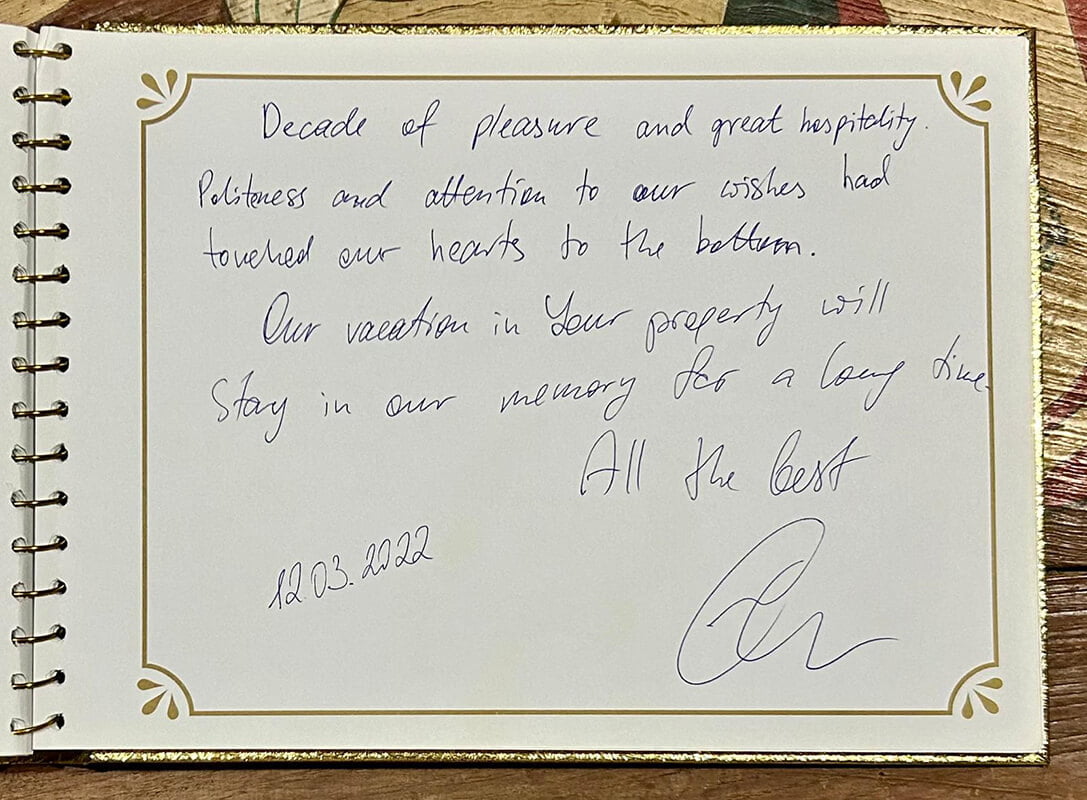 Decade of pleasure and great hospitality.
Politeness and attention to our wishes had
touched our hearts to the bottom.
Our vacation in Your property will
Stay in our memory for a long time.
All the best
12.03.2022